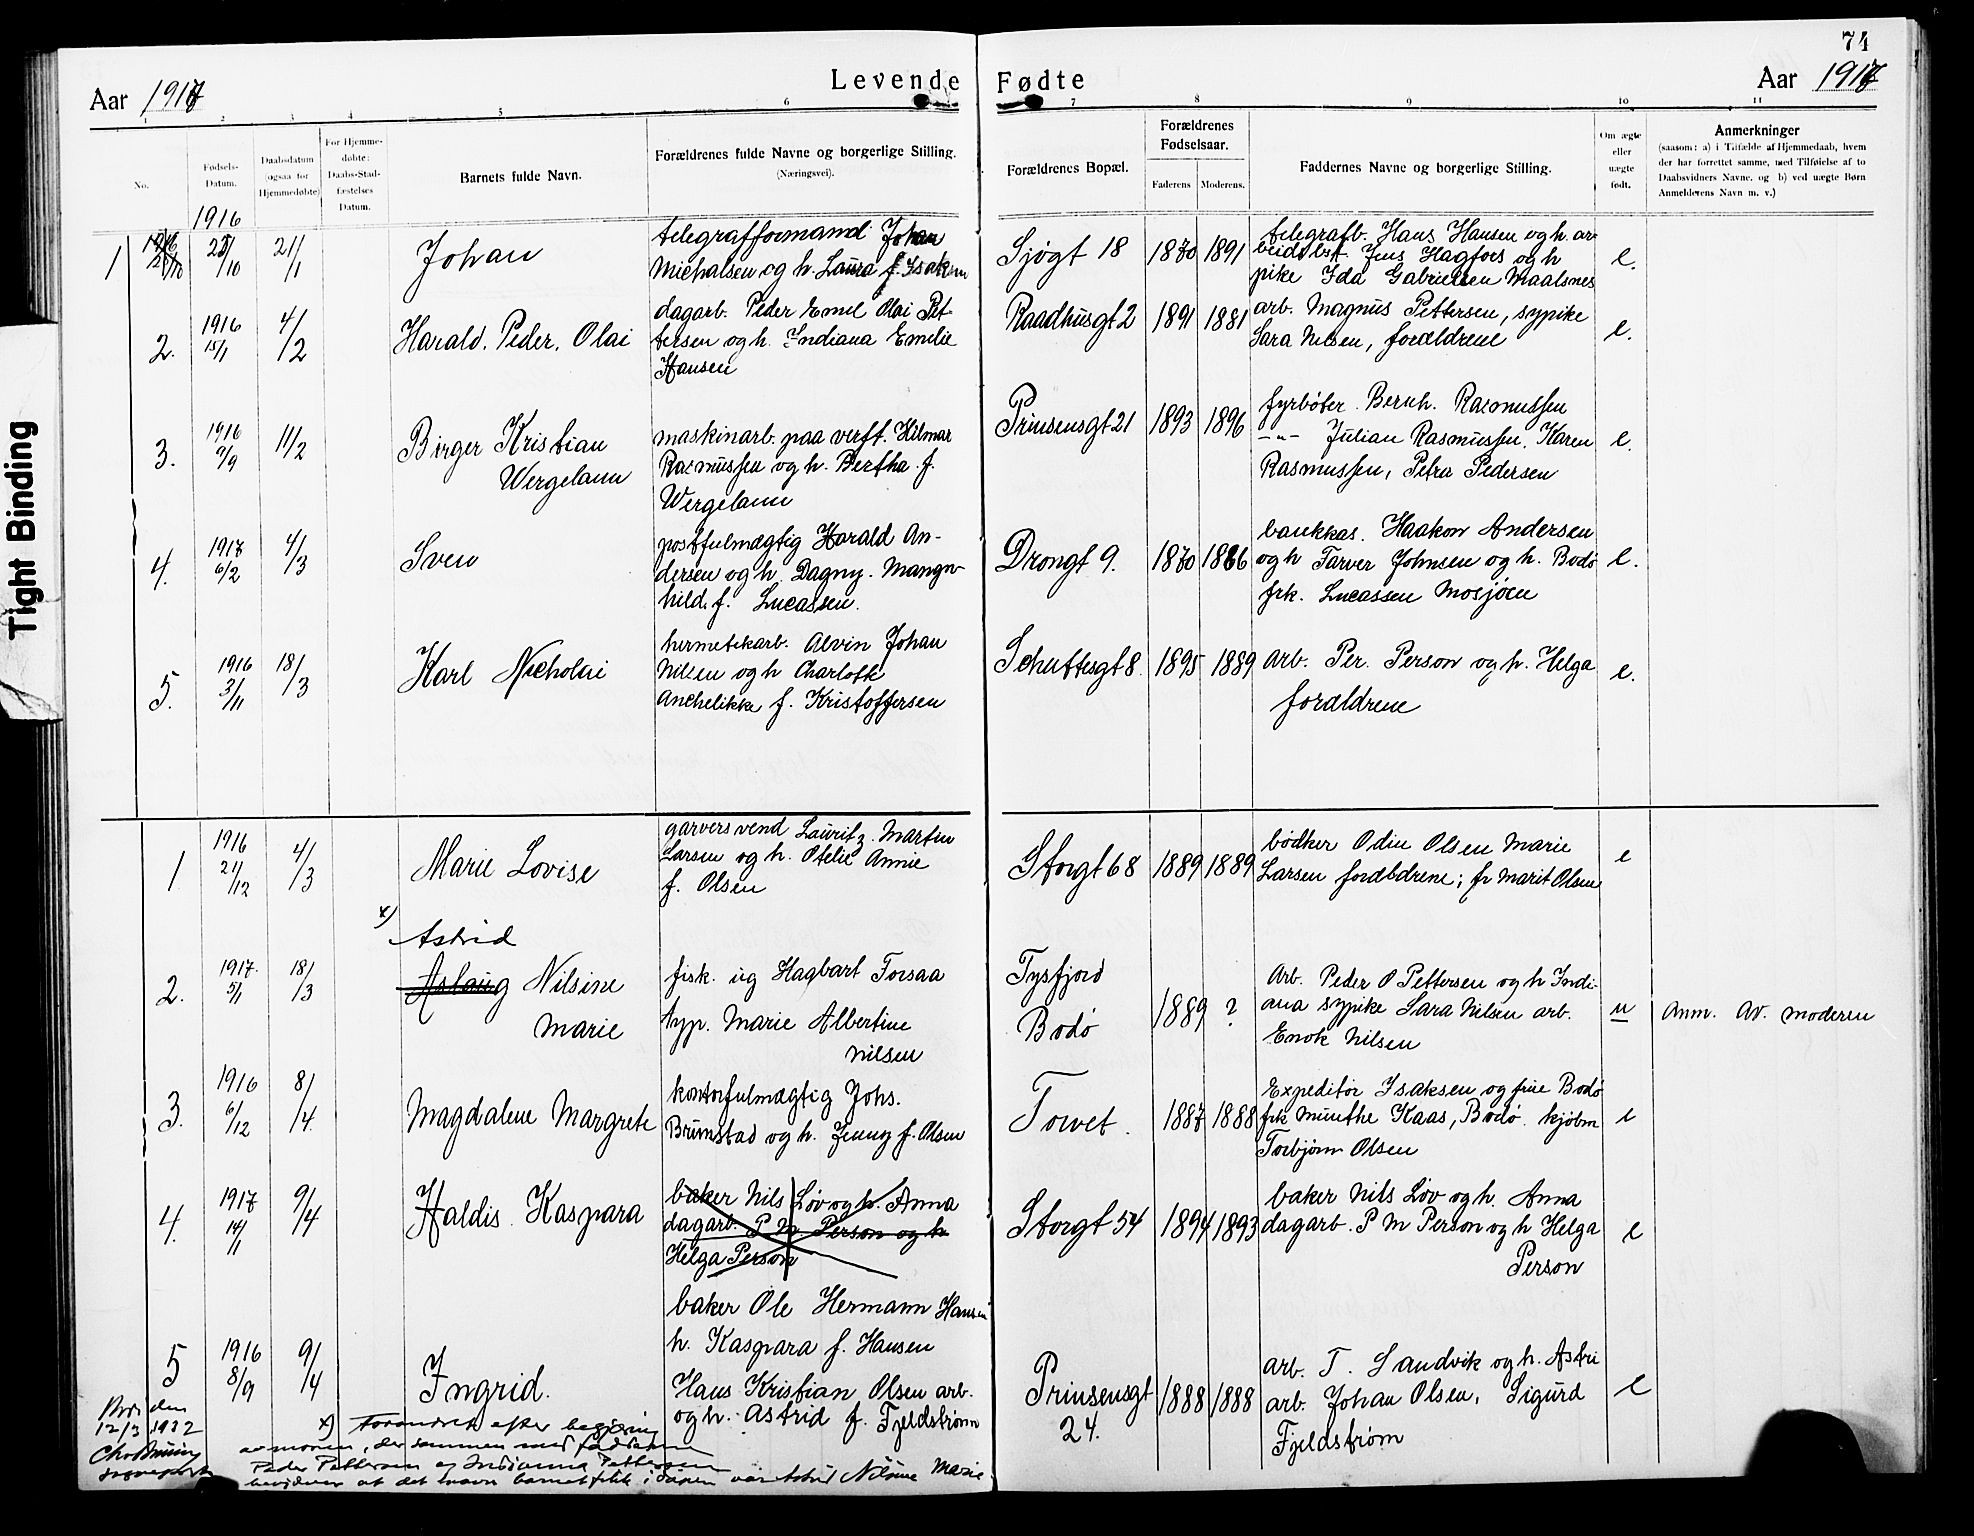 74
Levende Fødte
Aar 1917
Aar 1917
1 2 3 4 5 6 7 8 9 10 11
No.
Fødsels-
Datum.
Daabsdatum
(ogsaa for
Hjemmedøbte)
For Hjemme-
døbte:
Daabs-Stad-
fæstelses
Datum.
Barnets fulde Navn.
Forældrenes fulde Navne og borgerlige Stilling.
(Næringsvei).
Forældrenes Bopæl.
Forældrenes
Fødselsaar.
Faderens Moderens.
Faddernes Navne og borgerlige Stilling.
Om ægte
eller
uægte
født.
Anmerkninger
(saasom: a) i Tilfælde af Hjemmedaab, hvem
der har forrettet samme, med Tilføielse af to
Daabsvidners Navne, og b) ved uægte Børn
Anmelderens Navn m. v.)
Tight Binding
1916
1 25/10 21/1
Johan
telegrafformand Johan
Michalsen og h. Laura f. Isaksen
Sjøgt 18 1870 1891
telegrafb. Hans Hansen og h. ar-
Jens Hagfors og h
pike Ida Gabrielsen Maalsnes
e.
2. 1916 15/1 4/2
Harald. Peder. Olai
dagarb. Peder Emil Olai Pet-
tersen og h. Indiana Emilie
Hansen
Raadhusgt 2 1891 1881
arb. Magnus Pettersen, sypike
Sara Nilsen, forældrene
e.
3. 1916 9/9 11/2
Birger Kristian
Wergelann
maskinarb. paa verft. Hilmar
Rasmussen og h. Bertha f.
Wergelann
Prinsensgt 21 1893 1896
fyrbøter. Bernh. Rasmussen
-"- Julian Rasmussen. Karen
Rasmussen, Petra Pedersen
e.
4. 1917 6/2 4/3
Sven
postfulmægtig Harald An-
dersen og h. Dagny. Mangn-
hild. f. Lucassen.
Drongt 9. 1870 1866
bankkas. Haakon Andersen
og h Tarver Johnsen og h. Bodø
frk. Lucassen Mosjøen
e.
5. 1916 3/11 18/3
Karl Nicholai
hermetikarb. Alvin Johan
Nilsen og h Charlotte
Anchelikke f. Kristoffersen
Schuttesgt 8. 1895 1889
Arb. Per. Person og h. Helga
forældrene
e.
1 1916 21/12 4/3
Marie Lovise
garversvend Lauritz. Martin
Larsen og h. Otelie Annie
f. Olsen
Storgt 68 1889 1889
bødker Odin Olsen Marie
Larsen forældrene; fr Marit Olsen
e
x)
Astrid
2. 1917. 5/1 18/3
Aslaug Nilsine
Marie
fisk. ug Hagbart Forsaa
typ. Marie Albertine
Nilsen
Tysfjord
Bodø
1889 ?
Arb. Peder O Pettersen og h Indi-
ana sypike Sara Nilsen arb.
Enok Nilsen
u
Anm. Av. moderen
3. 1916 6/12 8/4
Magdalene Margrete
kontorfulmægtig Johs.
Brumstad og h. Jenny f. Olsen
Torvet. 1887 1888
Expeditør Isaksen og frue Bodø
frk Munthe Kaas, Bodø. kjøbm
Torbjørn Olsen
e
4. 1917 14/1 9/4
Haldis. Kaspara
baker Nils Løv og h. Anna
dagarb. P M Person og h
Helga Person
baker Ole Hermann Hansen
h. Kaspara f. Hansen
Storgt 54 1894 1893
baker Nils Løv og h. Anna
dagarb. P M Person og h Helga
Person
e
5 1916 8/9 9/4
Ingrid.
Hans Kristian Olsen arb.
og h. Astrid f. Fjeldstrøm
Prinsensgt
24.
1888 1888
arb. T. Sandvik og h. Astri
arb. Johan Olsen, Sigurd
Fjeldstrøm
e
den
12/3 1932
x) Forandret efter begjæring
av moren, der sammen med
Peder Pettersen og Indianna Pettersen
at det navn barnet fikk i dåpen var Astrid Nilsine Marie